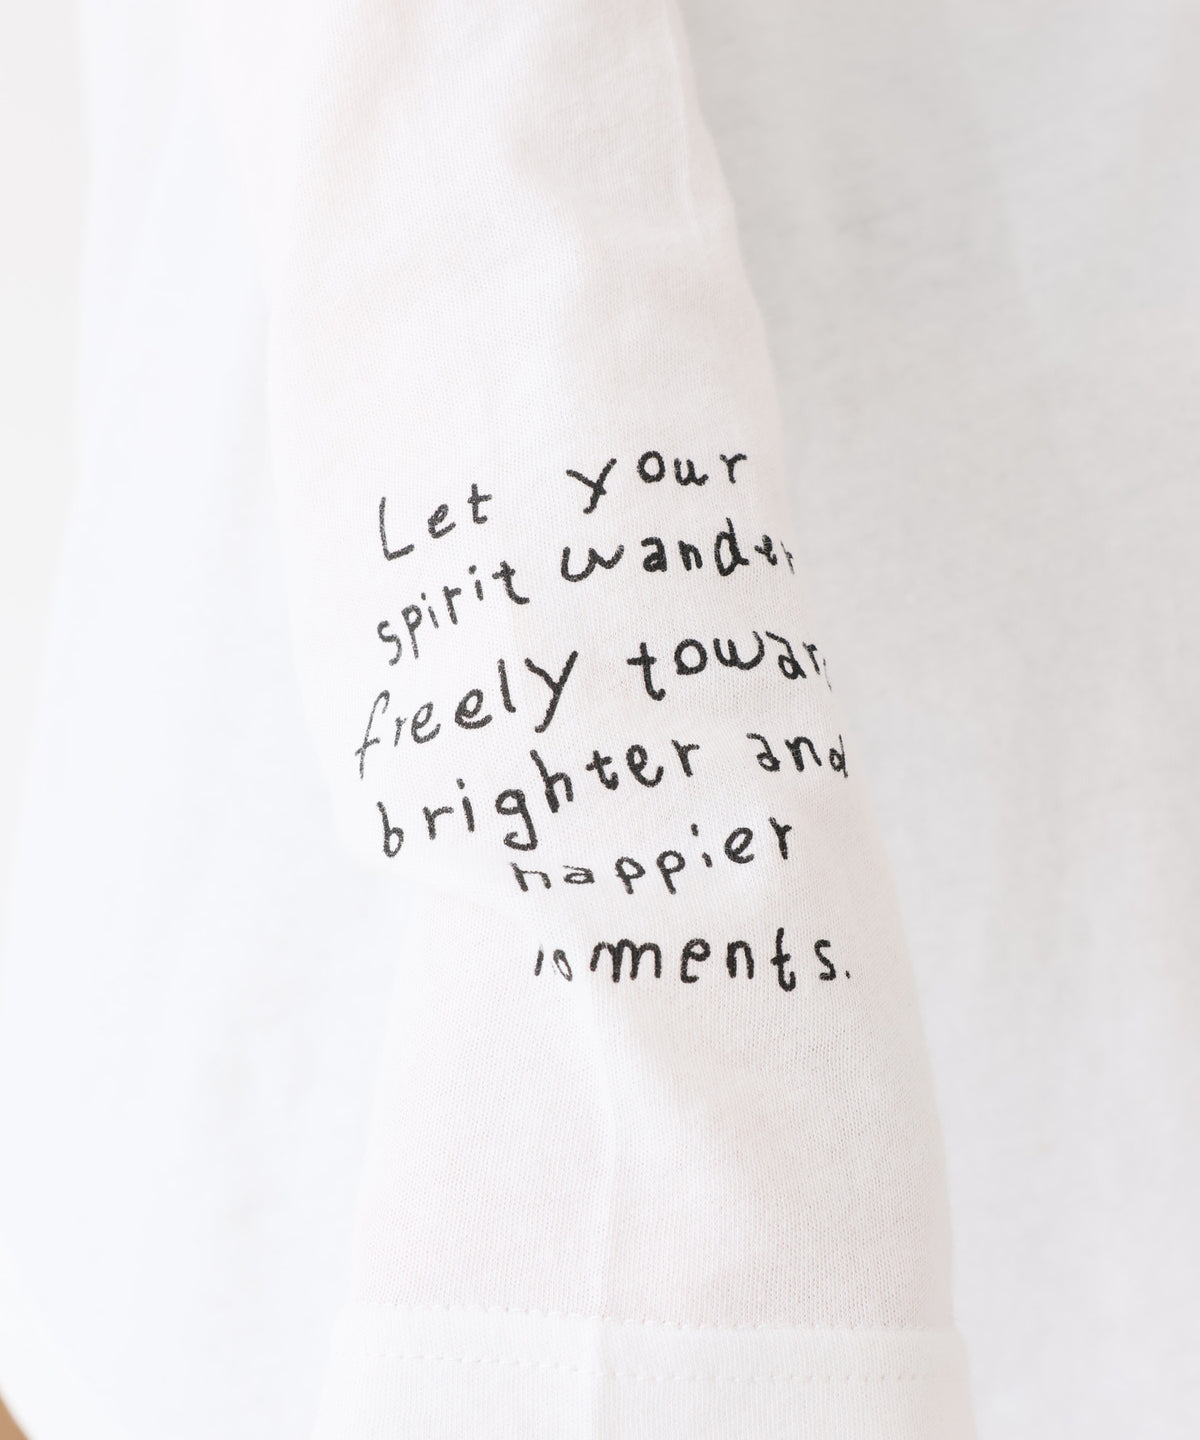 Let your
spirit wander
freely toward
brighter and
happier
moments.